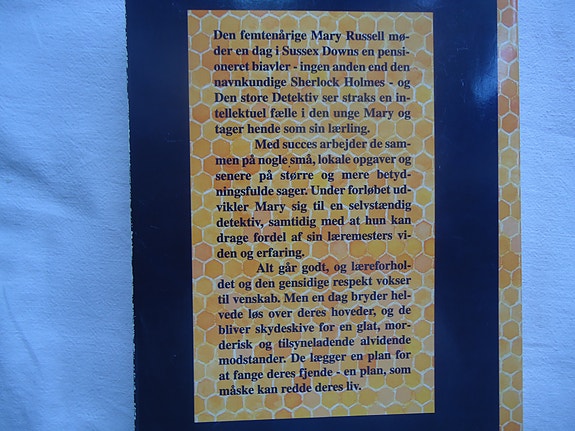 Den femtenårige Mary Russell mø-
der en dag i Sussex Downs en pensi-
oneret biavler - ingen anden end den
navnkundige Sherlock Holmes - og
Den store Detektiv ser straks en in-
tellektuel fælle i den unge Mary og
tager hende som sin lærling.
Med succes arbejder de sam-
men på nogle små, lokale opgaver og
senere på større og mere betyd-
ningsfulde sager. Under forløbet ud-
vikler Mary sig til en selvstændig
detektiv, samtidig med at hun kan
drage fordel af sin læremesters vi-
den og erfaring.
Alt går godt, og læreforhol-
det og den gensidige respekt vokser
til venskab. Men en dag bryder hel-
vede løs over deres hoveder, og de
bliver skydeskive for en glat, mor-
derisk og tilsyneladende alvidende
modstander. De lægger en plan for
at fange deres fjende - en plan, som
måske kan redde deres liv.